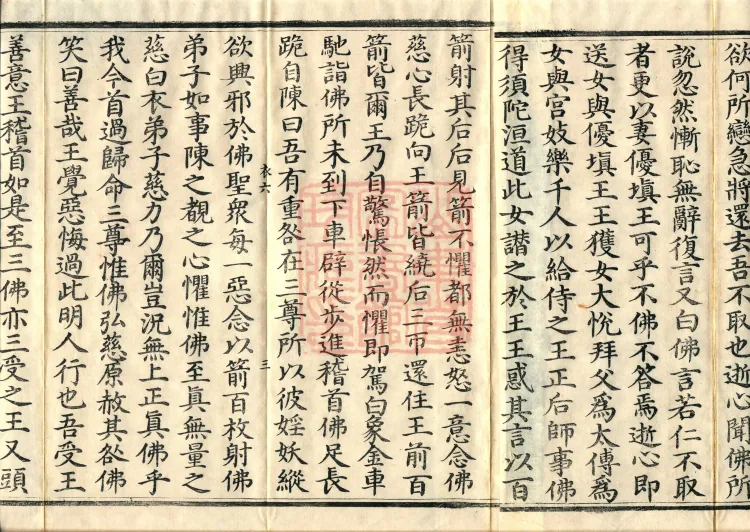 欲何所戀急將還去吾不取也逝心聞佛所
說忽然慚恥無辭復言又白佛言若仁不取
者更以妻優塡王可乎不佛不答焉逝心即
送女與優塡王王獲女大悅拜父爲太傅爲
女興宮妓樂千人以給侍之王正后師事佛
得須陀洹道此女譖之於王王惑其言以百
箭射其后后見箭不懼都無恚怒一意念佛
慈心長跪向王箭皆繞后三帀還住王前百
箭皆爾王乃自驚悵然而懼即駕白象金車
馳詣佛所未到下車辟從步進稽首佛足長
跪自陳曰吾有重咎在三尊所以彼婬妖縱
衣六
三
欲興邪於佛聖衆每一惡念以箭百枚射佛
弟子如事陳之覩之心懼惟佛至眞無量之
慈白衣弟子慈力乃爾豈況無上正眞佛乎
我今首過歸命三尊惟佛弘慈原赦其咎佛
笑曰善哉王覺惡悔過此明人行也吾受王
善意王稽首如是至三佛亦三受之王又頭